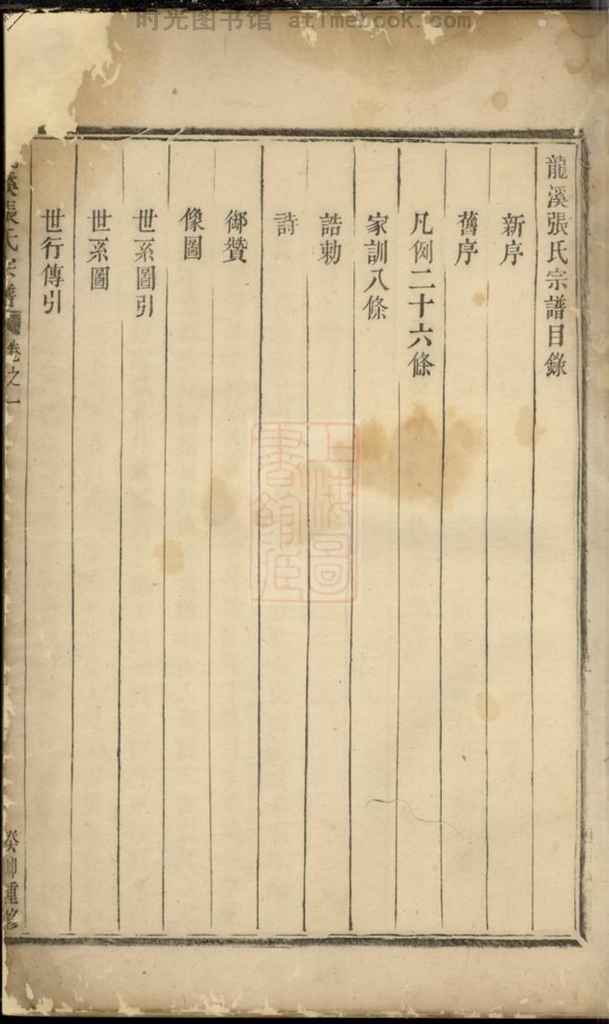 时光图书馆 atimebook.com
龍溪張氏宗譜目錄
新序
舊序
凡例二十六條
家訓八條
誥勅
詩
御贊
像圖
世系圖引
世系圖
世行傳引
溪張氏宗譜 卷之一
癸卯重修